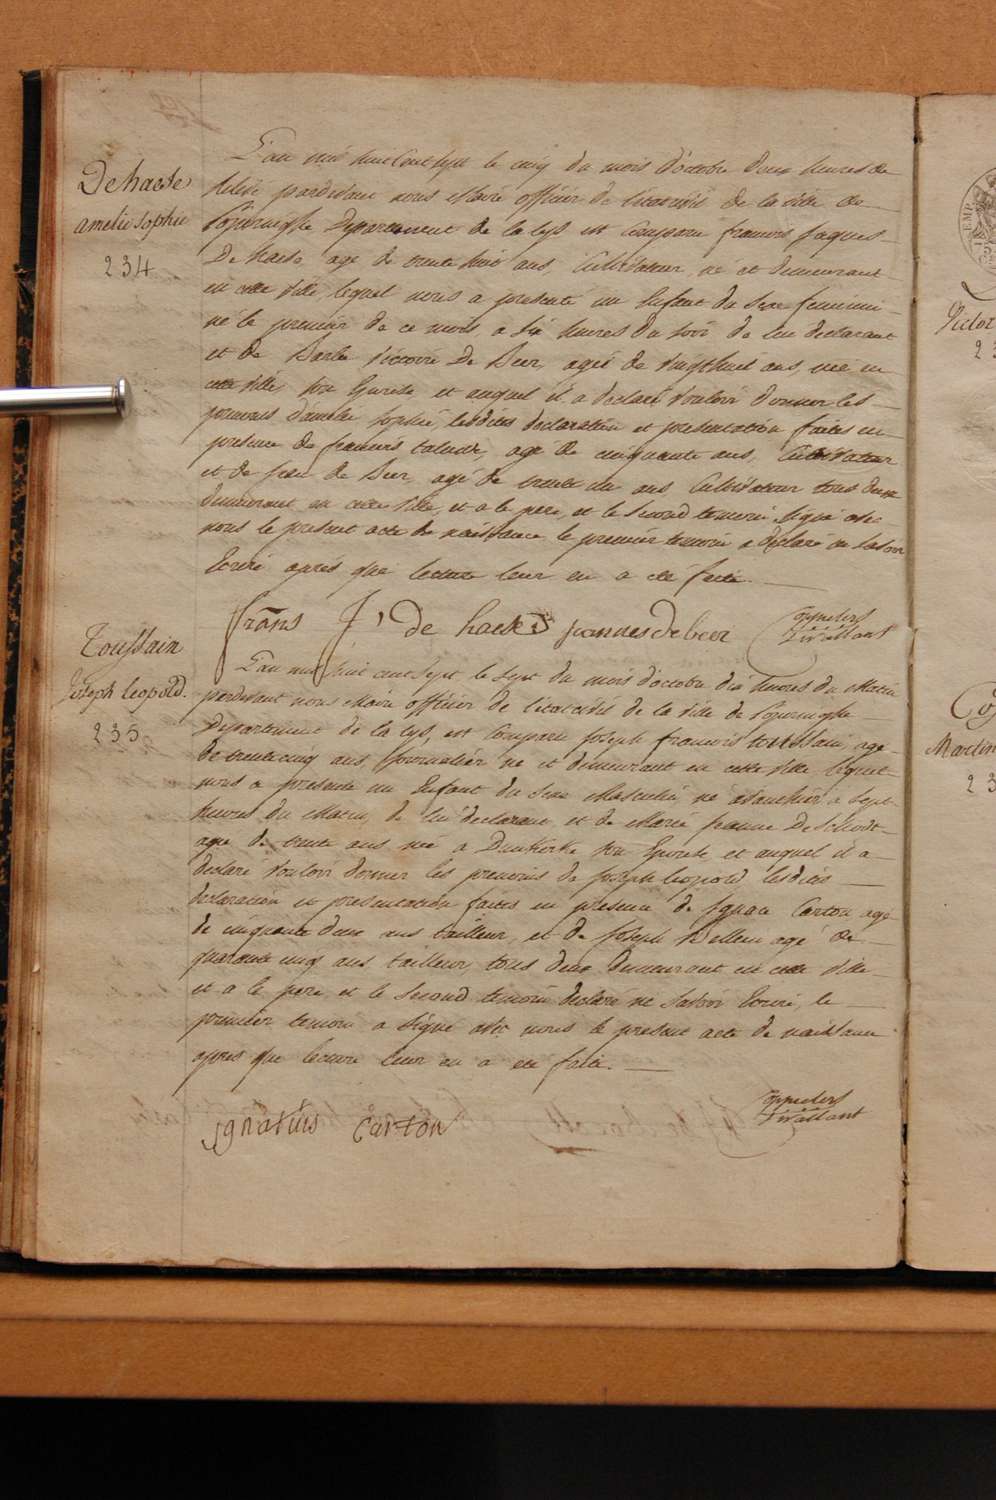 Dehaese
amelie sophie
234
L'an mil huit Cent sept le cinq du mois d'octobre deux heures de
relevé pardevant nous Maire officier de l'etatcivil de la ville de
Poperinghe Departement de la Lys est Comparu francois Jaques
De haese agé de trente huit ans, Cultivateur, né et demeurant
en cette ville, lequel nous a presenté un Enfant du Sexe feminin
né le premier de ce mois a six heures du soir de lui declarant
et de Barbe Victoire De Beer, agée de vingthuit ans, née en
cette ville son Epouse et auquel il a declaré vouloir donner les
prenoms d'amelie sophie, lesdites declaration et presentation faites en
presence de francois agé de cinquante ans, Cultivateur
et de Jean de Beer, agé de trente ans Cultivateur tous deux
demeurant en cette ville, et a le pere, et le second temoin signé avec
nous le present acte de naissance le premier temoin a declaré ne savoir
Ecrire après que lecture leur en a été faite.
frans J' de haese joannes de beer
Toussain
Joseph Leopold.
235
L'an mil huit cent sept le sept du mois d'octobre dix heures du Matin
pardevant nous Maire officier de l'etatcivil de la ville de Poperinghe
Departement de la Lys, est Comparu Joseph francois toussain, agé
de trentecinq ans Journalier né et demeurant en cette ville lequel
nous a presenté un Enfant du Sexe Masculin, né a sept
heures du Matin, de lui declarant et de Marie Jeanne
agée de trente ans née a Dunkerke son Epouse et auquel il a
declaré vouloir donner les prenoms de Joseph leopold lesdites
declaration et presentation faites en presence de Ignace Carton agé
de cinquante deux ans tailleur, et de Joseph agé de
quarante cinq ans tailleur, tous deux demeurant en cette ville
et a le pere et le second temoin declaré ne savoir Ecrire, le
premier temoin a signé avec nous le present acte de naissance
apres que lecture leur en a été faite.
ignatius Carton
Victor
Martin